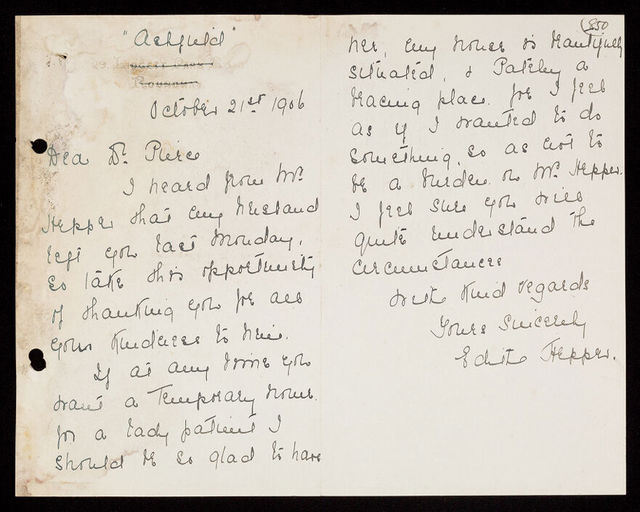 "Ashfield"
October 21st 1906
Dear Dr. Pierce
I heard from Mr.
Hepper that my husband
left you last Monday,
so take this opportunity
of thanking you for all
your kindness to him.
If at any time you
want a temporary home
for a lady patient I
should be so glad to have
850
her, my house is beautifully
situated, & Patchy a
bracing place. for I feel
as if I wanted to do
something, so as not to
be a burden on Mr. Hepper.
I feel sure you will
quite understand the
circumstances
With kind regards
Yours sincerely
Edith Hepper.